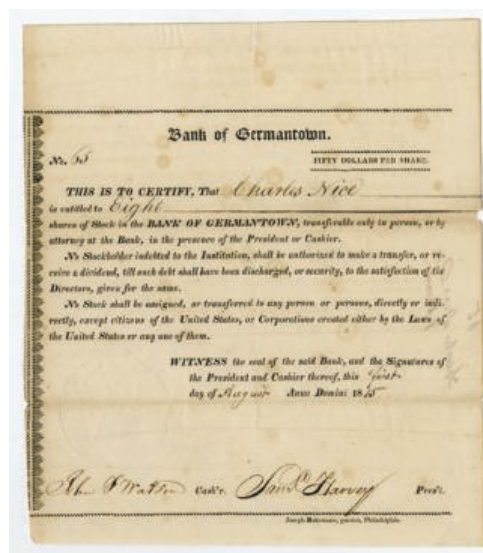 Bank of Germantown.
No. 65
FIFTY DOLLARS PER SHARE.
THIS IS TO CERTIFY, That Charles Nice
is entitled to Eight
shares of Stock in the BANK OF GERMANTOWN, transferable only in person, or by
attorney at the Bank, in the presence of the President or Cashier.
No Stockholder indebted to the Institution, shall be authorized to make a transfer, or re-
ceive a dividend, till such debt shall have been discharged, or security, to the satisfaction of the
Directors, given for the same.
No Stock shall be assigned, or transferred to any person or persons, directly or indi-
rectly, except citizens of the United States, or Corporations created either by the Laws of
the United States or any one of them.
WITNESS the seal of the said Bank, and the Signatures of
the President and Cashier thereof, this first
day of August Anno Domini 1815
John F Watson Cash'r. Saml. Harvey Pres't.
Joseph printer, Philadelphia.